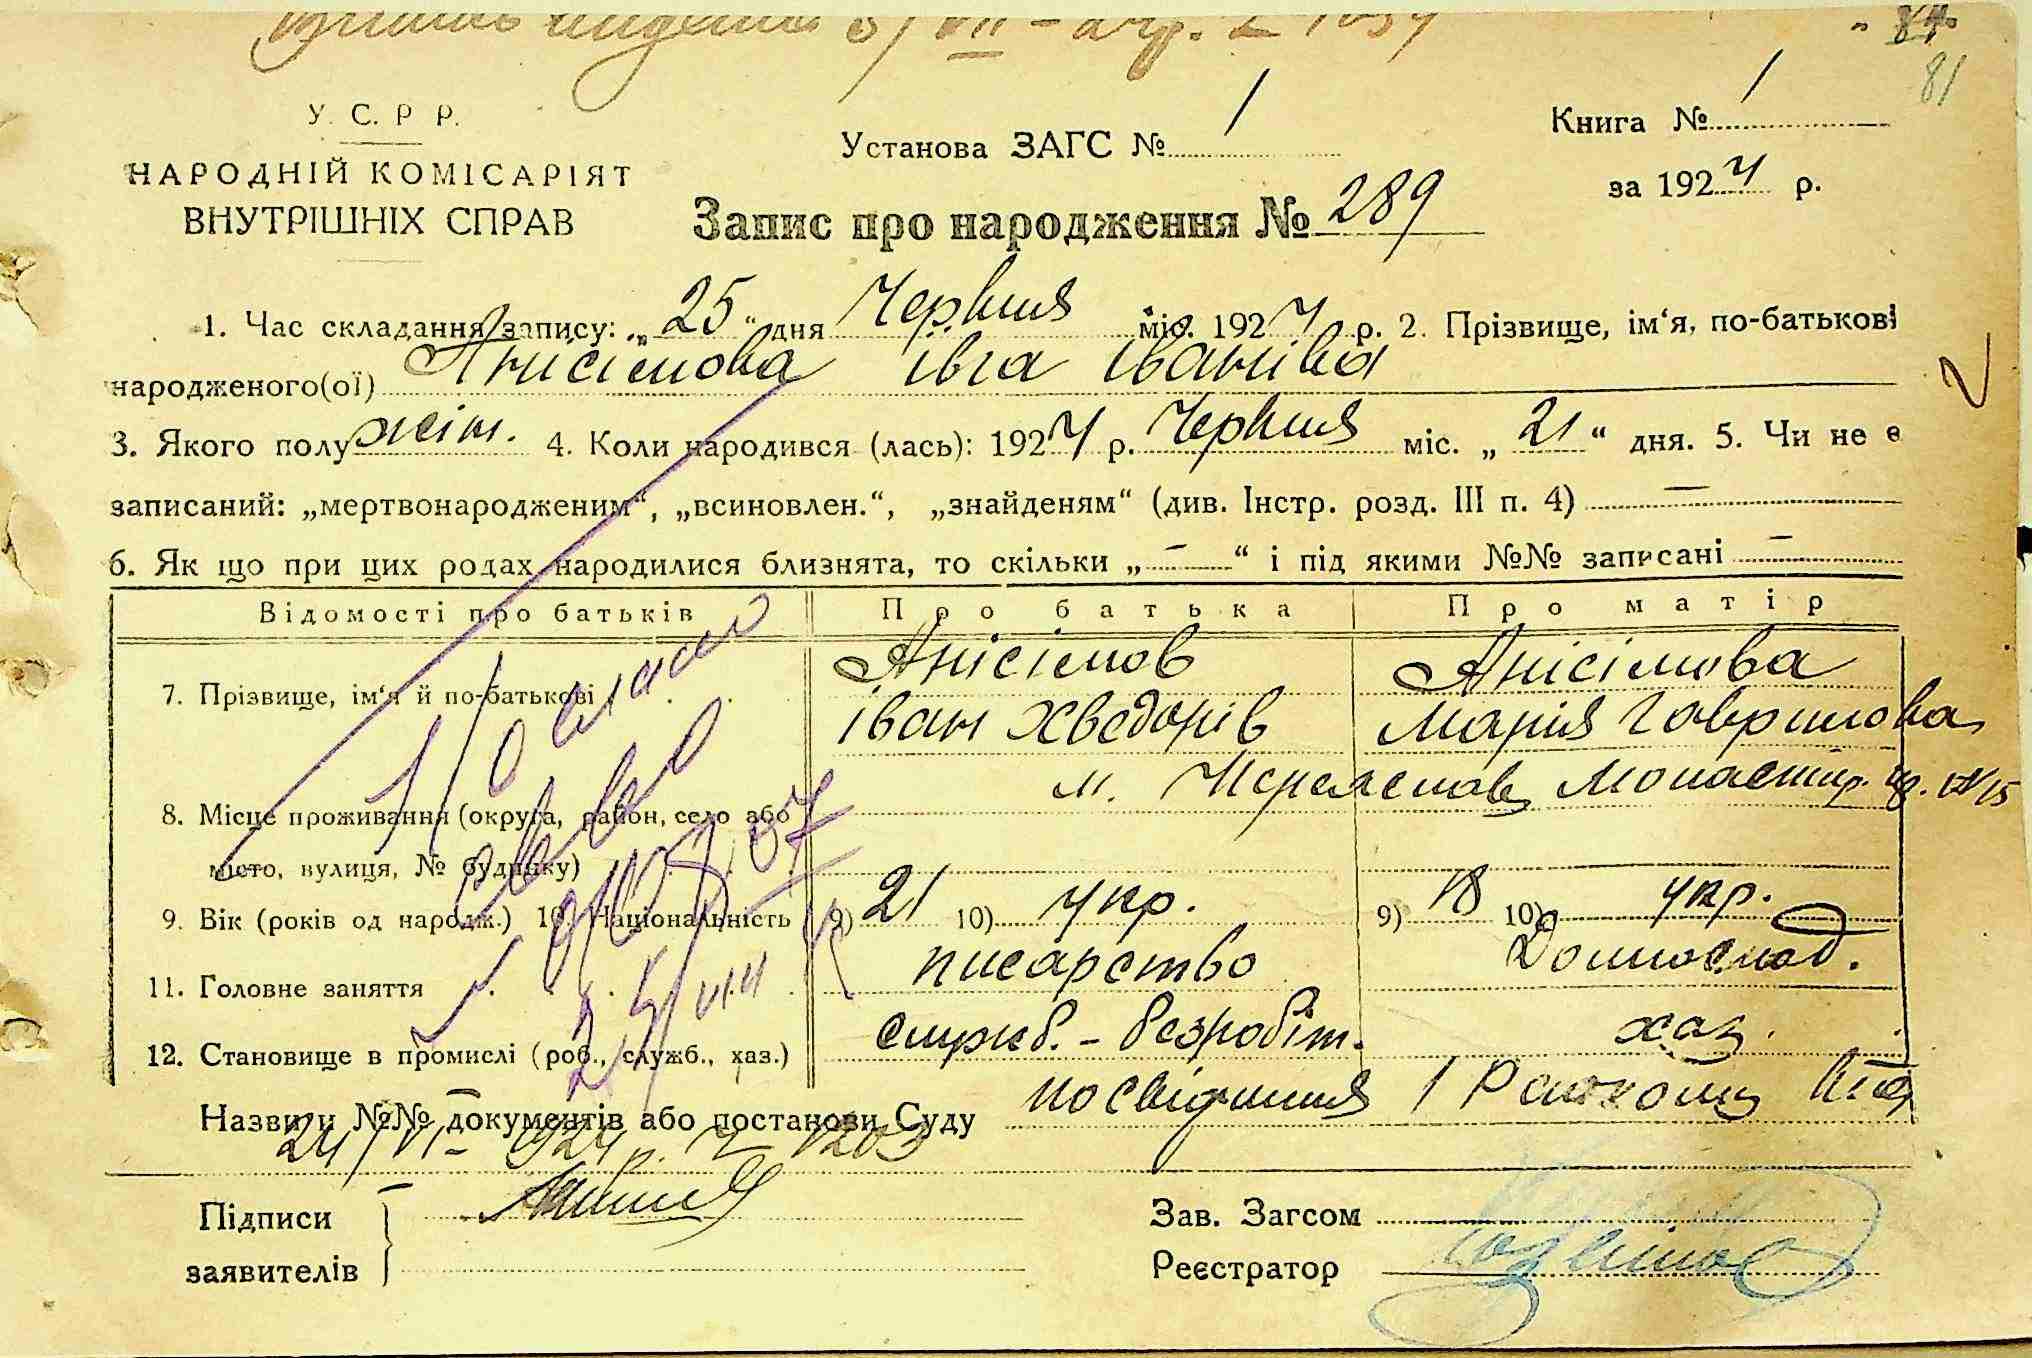 81
У. С. Р. Р.
НАРОДНІЙ КОМІСАРІЯТ
ВНУТРІШНІХ СПРАВ
Установа ЗАГС № 1
Книга № 1
за 1924 р.
Запис про народження № 289
1. Час складання запису: „ 25 “ дня Червня міс. 1924 р. 2. Прізвище, ім‘я, по-батькові
народженого(ої) Анисімова Івга Іванівна
3. Якого полу жін. 4. Коли народився (лась): 1924 р. Червня міс. „ 21 “ дня. 5. Чи не є
записаний: „мертвонародженим“, „всиновлен.“, „знайденям“ (див. Інстр. розд. III п. 4) —
6. Як що при цих родах народилися близнята, то скільки „ — “ і під якими №№ записані —
Відомості про батьків Про батька Про матір
7. Прізвище, ім‘я й по-батькові Анісімов Анісімова
Іван Хведорів Марія Гаврилова
8. Місце проживання (округа, район, село або м. Переяслав, Монастир.
місто, вулиця, № будинку)
9. Вік (років од народж.) 10. Національність 9) 21 10) укр. 9) 18 10) укр.
11. Головне заняття писарство Домогоспод.
12. Становище в промислі (роб., служб., хаз.) служб. - безробіт. хаз.
Назви и №№ документів або постанови Суду посвідчення 1 Райкому
24/VI- 924 р. № 1203
Підписи
заявителів
Зав. Загсом
Реєстратор